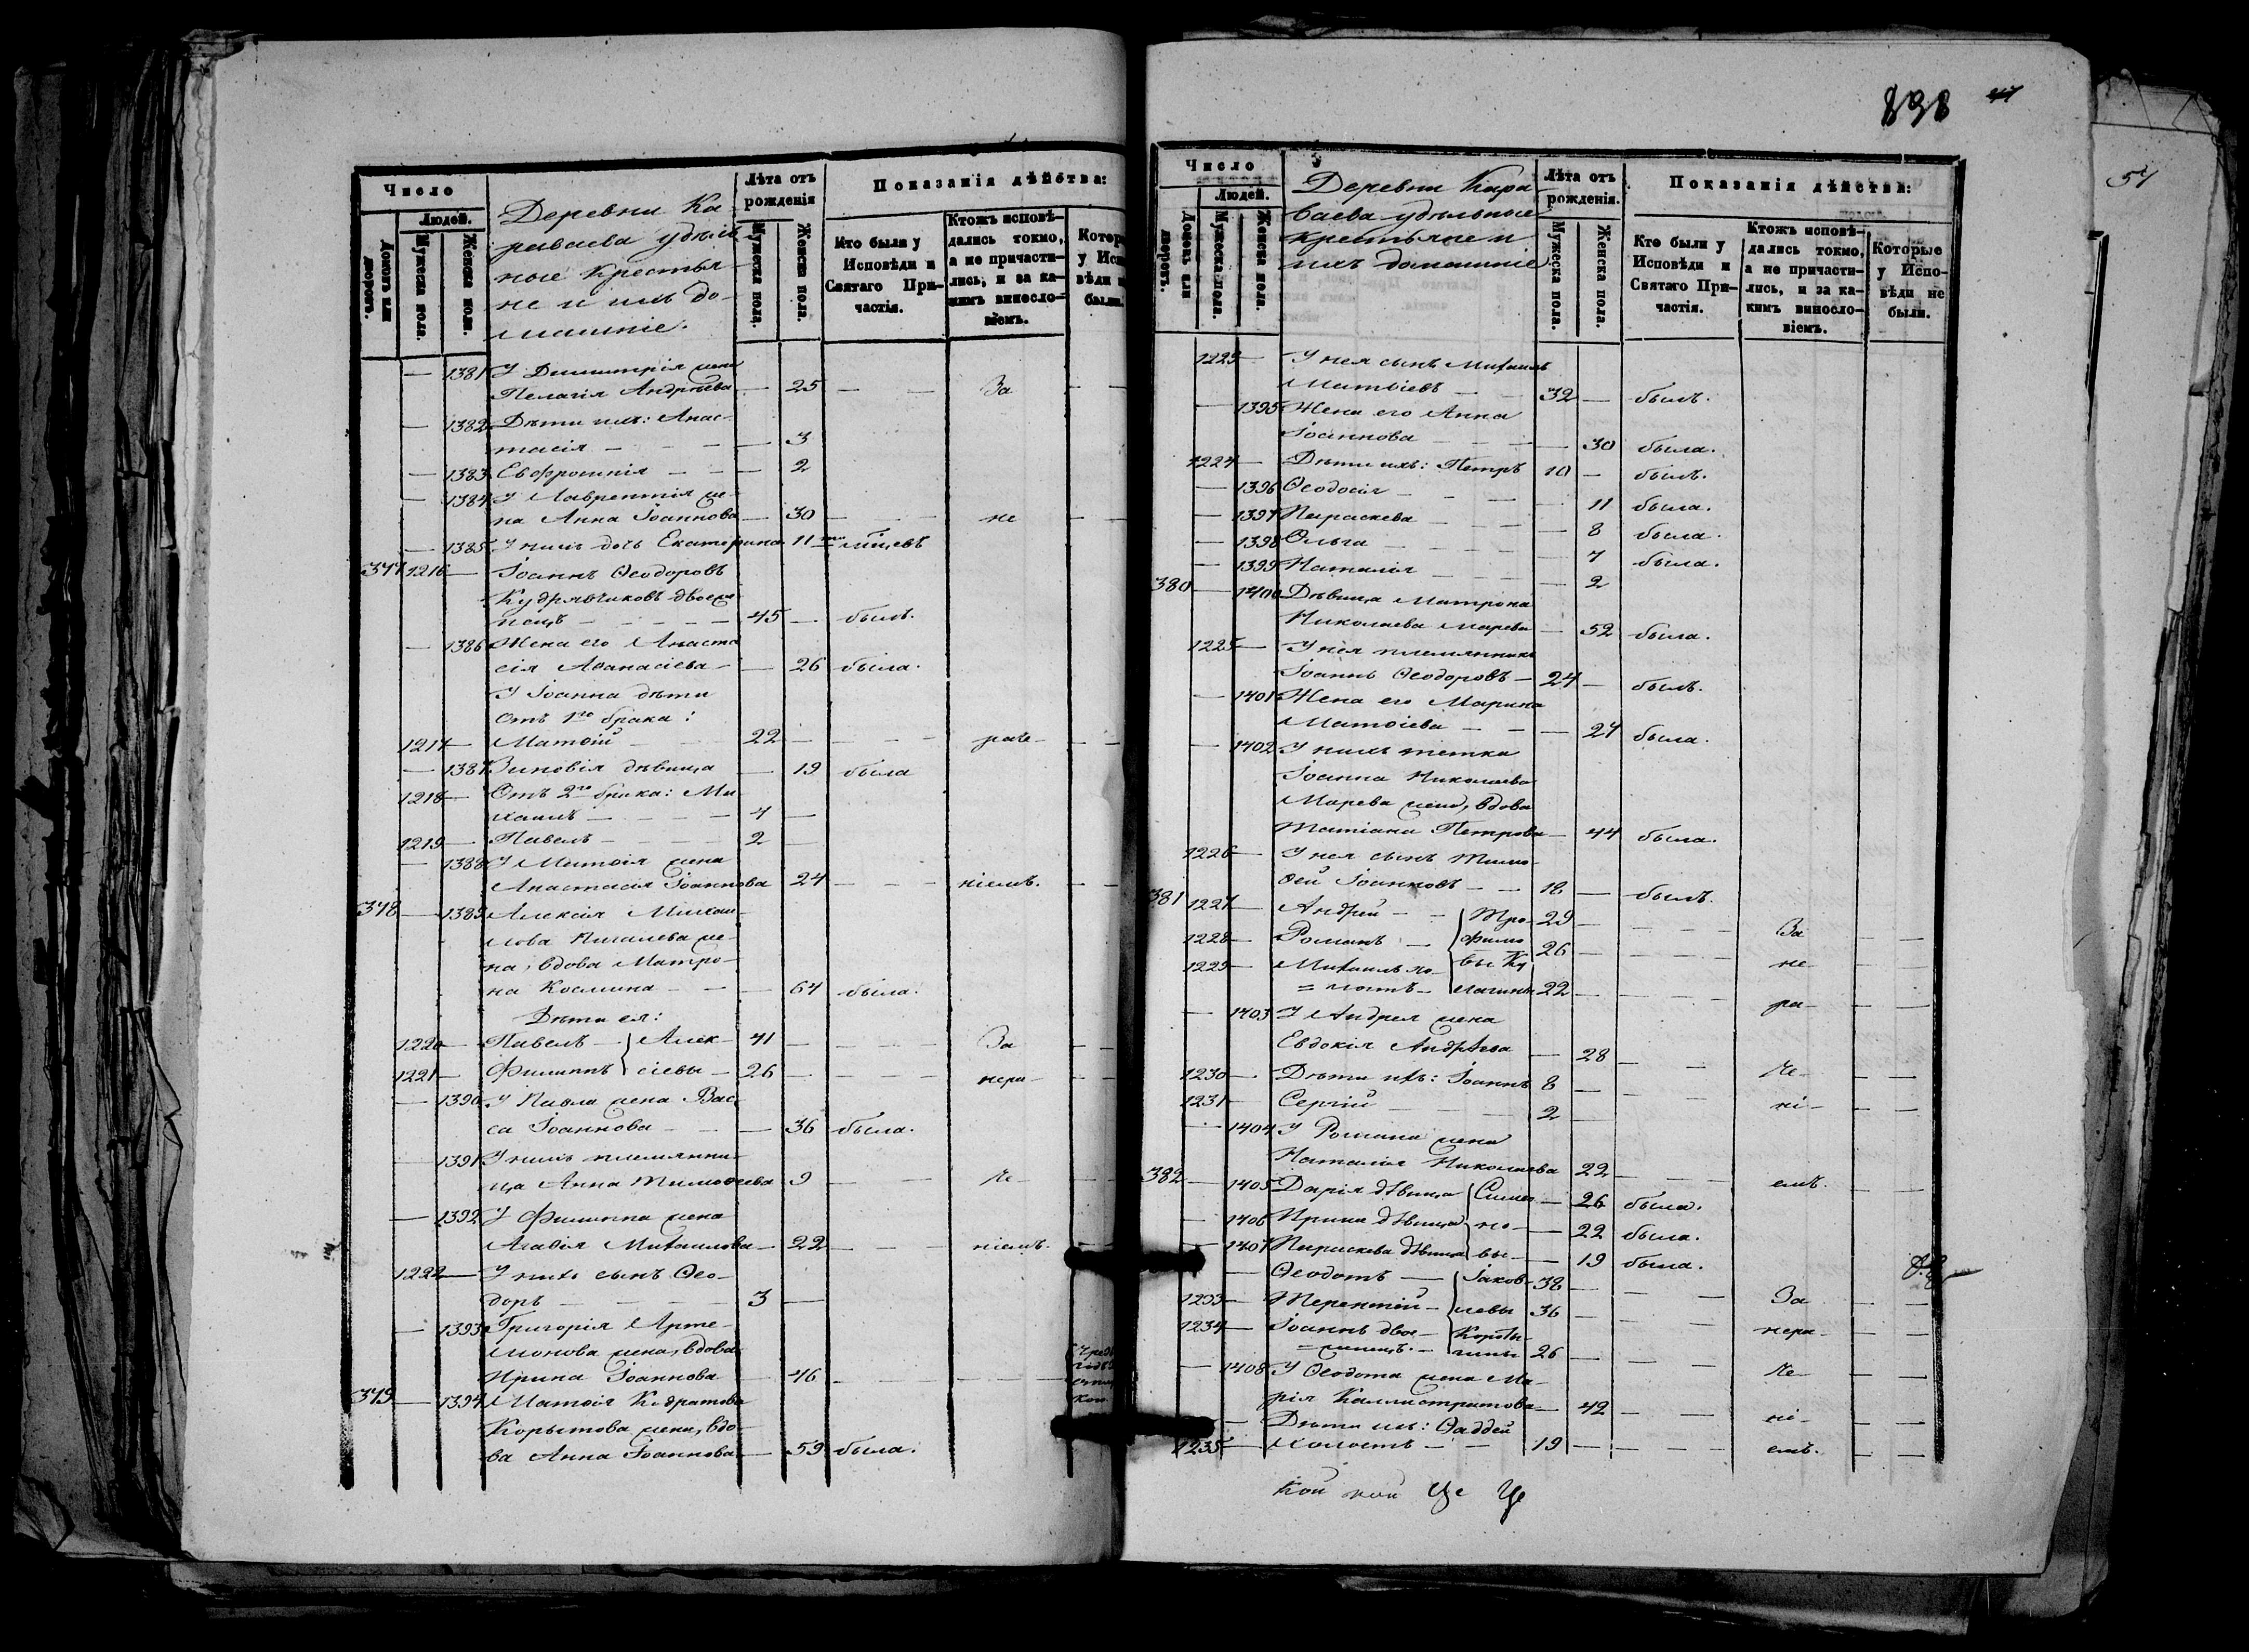 Число
Людей.
Домовъ или дворовъ.
Мужеска пола.
Женска пола.
Деревни Ка-
раваева удѣль
ные крестья-
не и ихъ до-
машніе.
Лѣта отъ рожденія
Мужеска пола.
Женска пола.
Показанія дѣйства:
Кто были у Исповѣди и Святаго При-частія.
Ктожъ исповѣ-дались токмо, а не причасти-лись, и за ка-кимъ виносло-віемъ.
— 1381 У Димитрія жена
Пелагія Андрѣева — 25 — — За — —
— 1382 Дѣти ихъ: Анас-
тасія — — — — 3
— 1383 Евфросинія — — — 2
— 1384 У Лаврентія же-
на Анна Іоаннова — 30 — — не — —
— 1385 У нихъ дочь Екатерина 11 мѣсецевъ
377 1216 — Іоаннъ Ѳеодоровъ
двоеже
нецъ — — — — 45 — былъ.
— 1386 Жена его Анаста
сія Аѳанасіева — — 26 была.
У Іоанна дѣти
Отъ 1го брака:
1217 — Матѳій — — 22 — — — раче — — —
— 1387 Зиновія дѣвица — 19 была
1218 — Отъ 2го брака: Ми
хаилъ — — — — 4 —
1219 — Павелъ — — — 2 —
— 1388 У Матѳія жена
Анастасія Іоаннова 24 — — — ніемъ. — —
378 — 1389 Алексія Михаи-
лова же-
на, вдова Матро-
на Космина — — — 64 была.
Дѣти ея:
1220 — Павелъ — Алек- 41 — — — — За —
1221 — Филиппъ сіевы — 26 — — — нера — —
— 1390 У Павла жена Вас
са Іоаннова — — — 36 была.
— 1391 У нихъ племянни-
ца Анна Тимоѳеева 9 — — Че — —
— 1392 У Филиппа жена
Агафія Михаилова — 22 — — ніемъ.
1222 — У нихъ сынъ Ѳео-
доръ — — — — 3 —
— 1393 Григорія Арте-
монова жена, вдова
Ирина Іоаннова — 46 — — — —
379 — 1394 Матѳія Кодратова
Корытова жена, вдо-
ва Анна Іоаннова — 59 была.
838
Число
Людей.
Домовъ или дворовъ.
Мужеска пола.
Женска пола.
Деревни Кара-
ваева удѣльные
крестьяне и
ихъ домашніе
Лѣта отъ рожденія.
Мужеска пола.
Женска пола.
Показанія дѣйства:
Кто были у Исповѣди и Святаго При-частія.
Ктожъ исповѣ-дались токмо, а не причасти-лись, и за ка-кимъ виносло-віемъ.
Которые у Испо-вѣди не были.
1223 — У нея сынъ Михаилъ
Матѳіевъ — — 32 — былъ.
— 1395 Жена его Анна
Іоаннова — — — — 30 была.
1224 — Дѣти ихъ: Петръ 10 — былъ.
— 1396 Ѳеодосія — — — — 11 была.
— 1397 Параскева — — — — 8 была.
— 1398 Ольга — — — — 7 была.
— 1399 Наталія — — — — 2
380 — 1400 Дѣвица Матрона
Николаева Марева — 52 была.
1225 — У нея племянникъ
Іоаннъ Ѳеодоровъ — 24 — былъ.
— 1401 Жена его Марина
Матѳіева — — — 24 была.
— 1402 У нихъ тетка
Іоанна Николаева
Марева жена, вдова
Татіана Петрова — 44 была.
1226 — У нея сынъ Тимо-
ѳей Іоанновъ — — 18 — былъ.
381 1227 — Андрей — — Тро- 29 — — — — За — —
1228 — Романъ — фимо 26 — — — — не — —
1229 — Михаилъ хо- вы Ку
= лостъ — лагины 22 — — — — ра — — —
— 1403 У Андрея жена
Евдокія Андрѣева — 28 — — —
1230 — Дѣти ихъ: Іоаннъ 8 — — — Че — — —
1231 — Сергій — — — 2 — — — ні — — —
— 1404 У Романа жена
Наталія Николаева 22 — — — емъ. — —
382 — 1405 Дарія дѣвица Симео — 26 была.
— 1406 Ирина дѣвица но — — 22 была.
— 1407 Параскева дѣвица вы — — 19 была.
— Ѳеодотъ — Іаков- 38 — — — — За — —
1233 — Терентій — левы 36 — — — —
1234 — Іоаннъ двое- нера — — —
= женецъ. — 26 — — —
— 1408 У Ѳеодота жена Ма- Че — — —
рія Каллистратова — 42 — — — ні — — —
— Дѣти ихъ: Ѳаддей
1235 — холостъ — — 19 — — — — емъ. — —
54